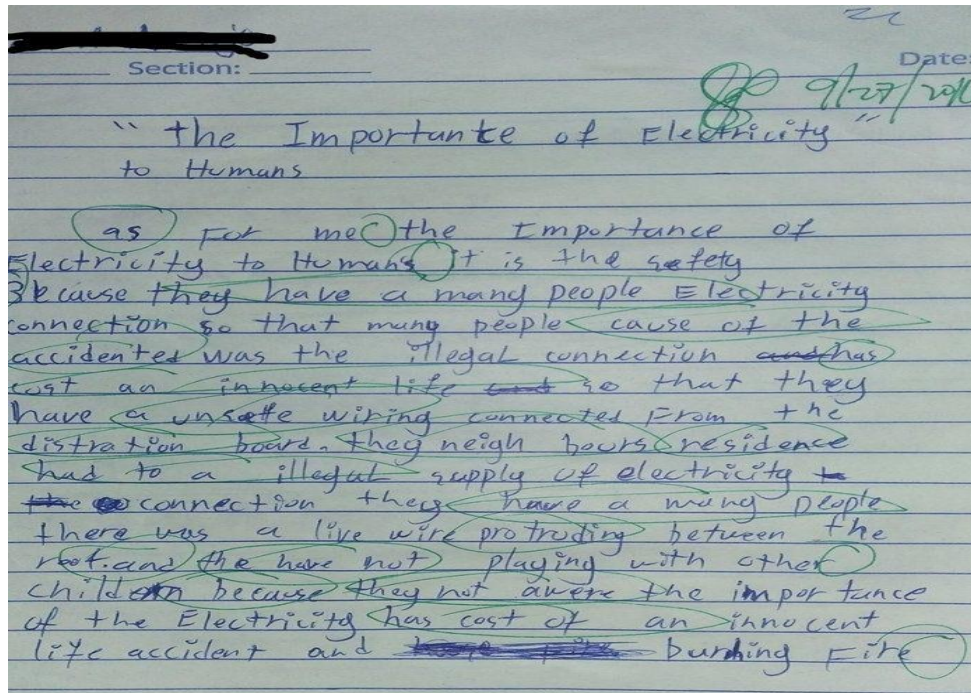 Date:
Section:
9/27/2016
"the Importante of Electricity"
to Humans
as For me the Importance of
Electricity to Humans it is the sefety
Because they have a many people Electricity
connection so that many people cause of the
accidented was the illegal connection has
cost an innocent life so that they
have a unsafe wiring connected From the
distration board. they neigh bours residence
had to a illegal supply of electricity
connection they have a many people
there was a live wire protruding between the
roof. and the have not playing with other
children because they not avere the impor tance
of the Electricity has cost of an innocent
life accident and burning Fire